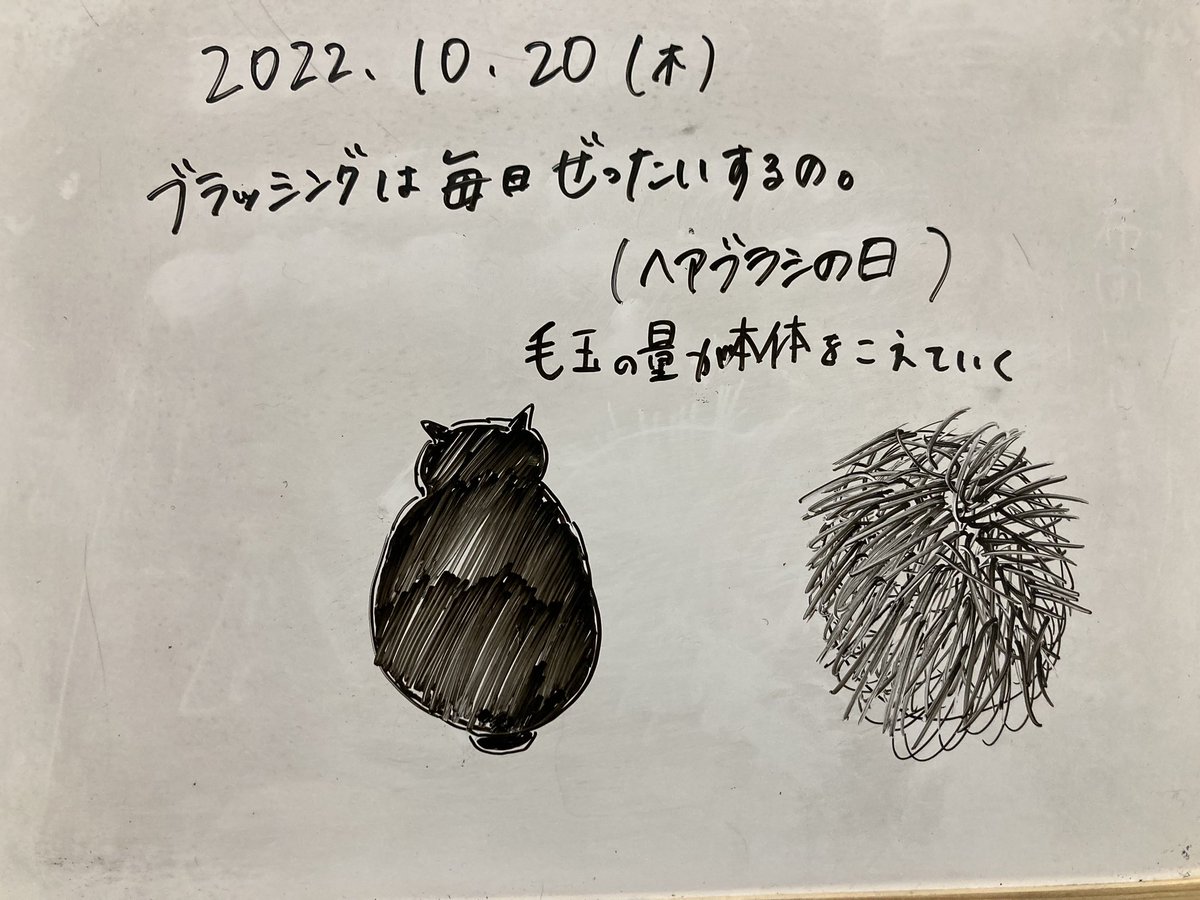 2022.10.20(木)
ブラッシングは毎日ぜったいするの。
(ヘアブラシの日)
毛玉の量が本体をこえていく